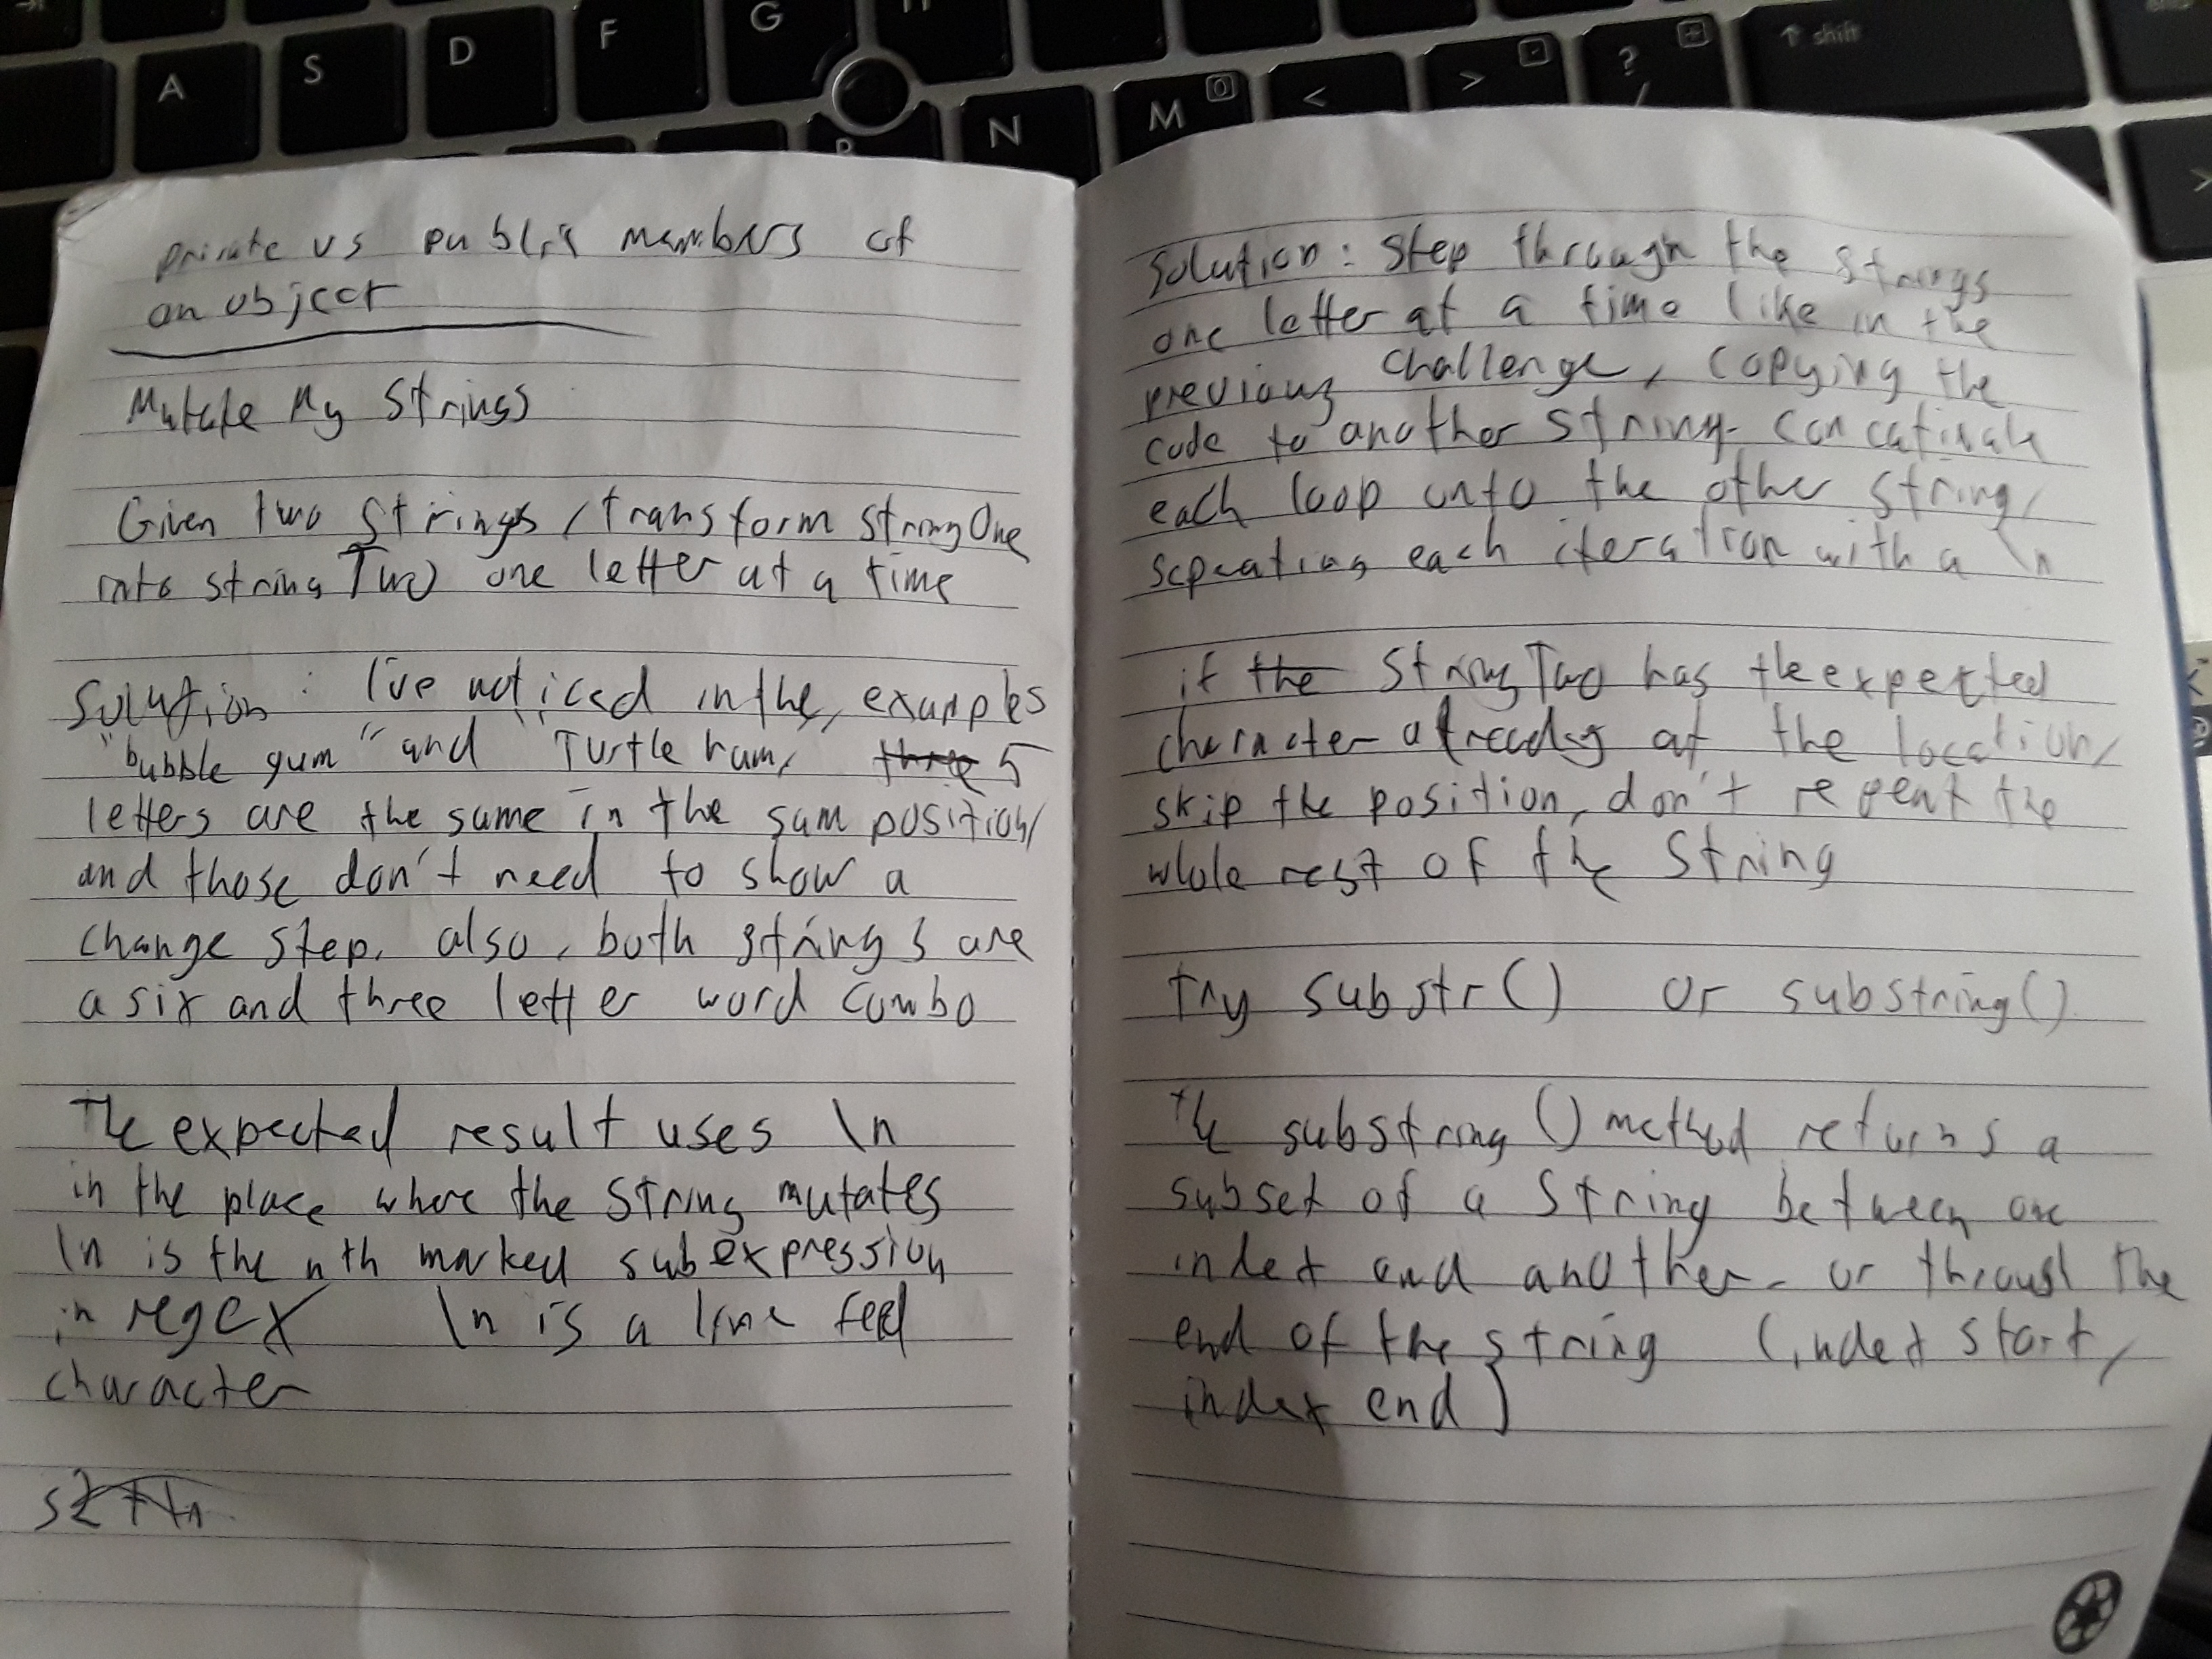 A S D F G H
B N M 0 < > . ? / + ↑ shift
private vs public members of
an object
Mutate My Strings
Given two Strings, transform stringOne
into stringTwo one letter at a time
Solution: I've noticed in the, examples
"bubble gum" and "Turtle ham, three 5
letters are the same in the sam position,
and those don't need to show a
change step. also, both strings are
a six and three letter word combo
The expected result uses \n
in the place where the String mutates
\n is the nth marked subexpression
in regex \n is a line feed
character
Solution: Step through the strings
one letter at a time like in the
previous challenge, copying the
code to another string. concatinate
each loop onto the other string,
sepeating each iteration with a \n
if the StringTwo has the expected
character already at the location,
skip the position, don't repeat the
whole rest of the String
Try substr() or substring()
the substring() method returns a
subset of a String between one
index and another. or through the
end of the string (index start,
index end)